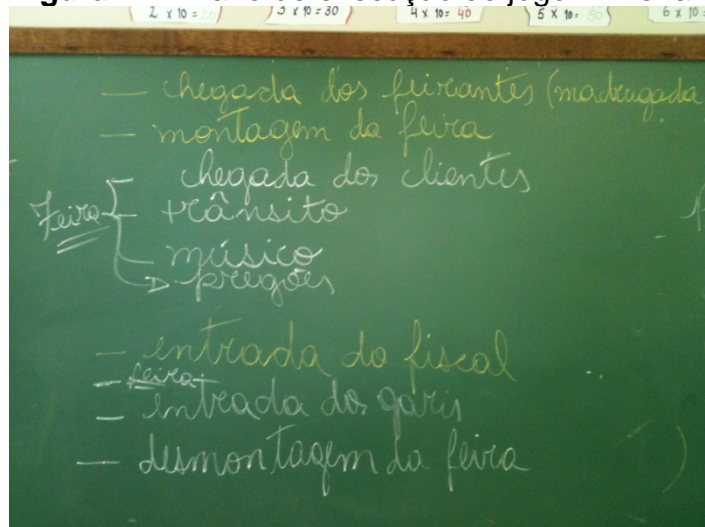 2 x 10 = 20
3 x 10 = 30
4 x 10 = 40
5 x 10 = 50
6 x 10 =
— chegada dos feirantes (madrugada
— montagem da feira
chegada dos clientes
Feira
trânsito
— músico
pregões
— entrada do fiscal
— feira
— entrada dos garis
— desmontagem da feira
)